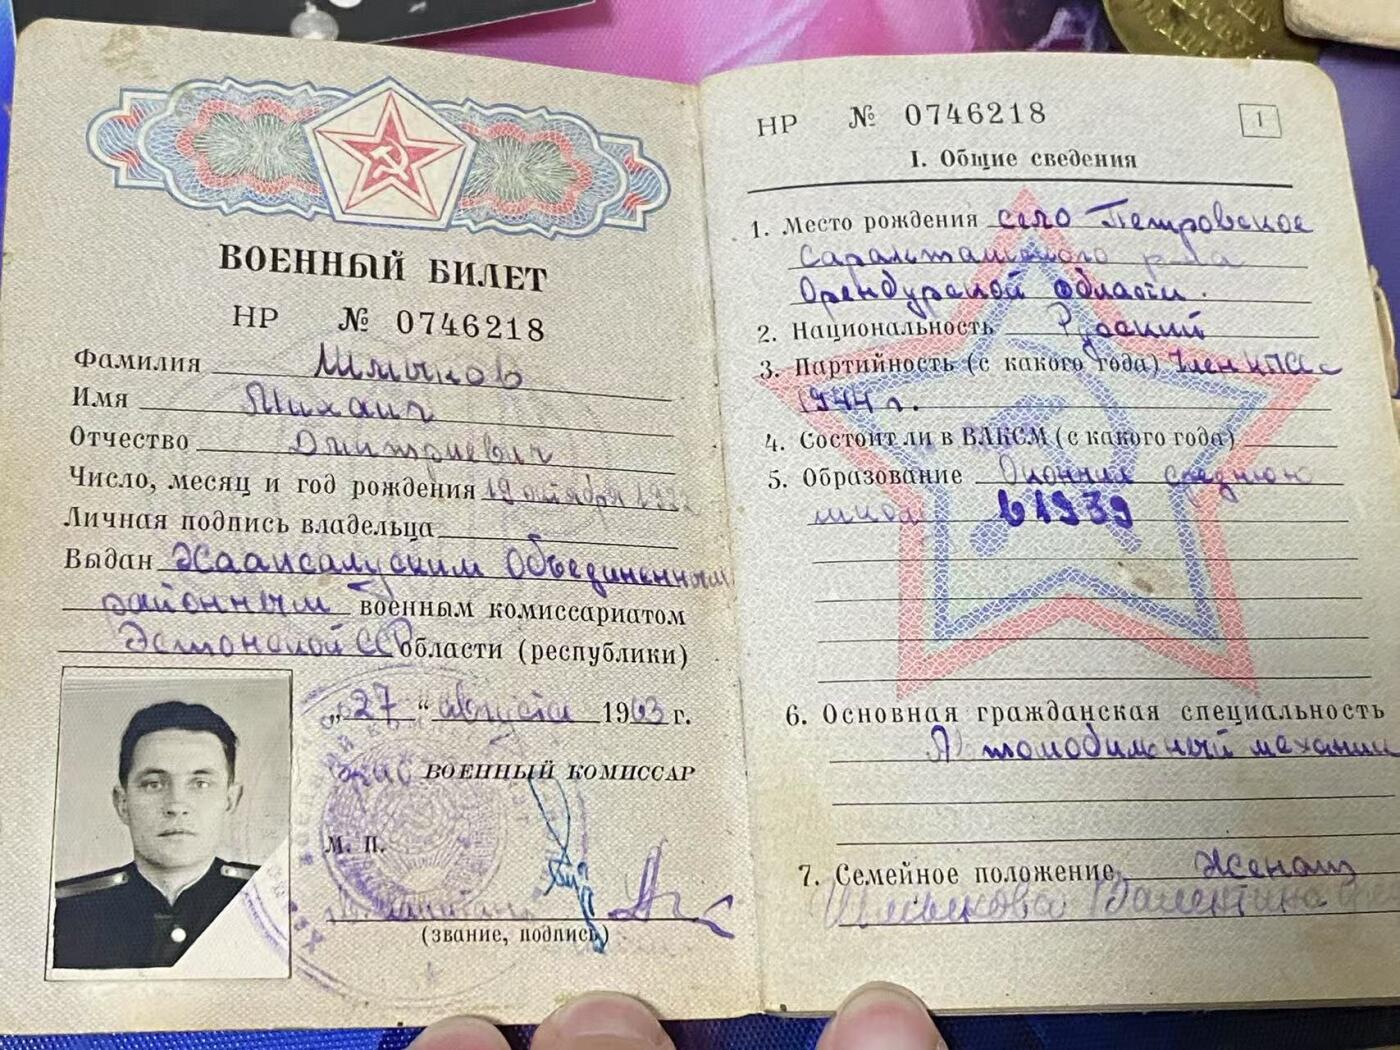 ВОЕННЫЙ БИЛЕТ
НР № 0746218
Фамилия
Имя Михаил
Отчество Дмитриевич
Число, месяц и год рождения 19 октября
Личная подпись владельца
Выдан Хаапсалуским Объединенным
районным военным комиссариатом
Эстонской ССР области (республики)
„27“ августа 1963 г.
ВОЕННЫЙ КОМИССАР
М. П.
(звание, подпись)
НР № 0746218
1
I. Общие сведения
1. Место рождения село Петровское
Саракташского р-на
Оренбургской области.
2. Национальность Русский
3. Партийность (с какого года) Член КПСС с
1944 г.
4. Состоит ли в ВЛКСМ (с какого года)
5. Образование Окончил среднюю
в 1939
6. Основная гражданская специальность
Автомобильный механик
7. Семейное положение Женат
Валентина